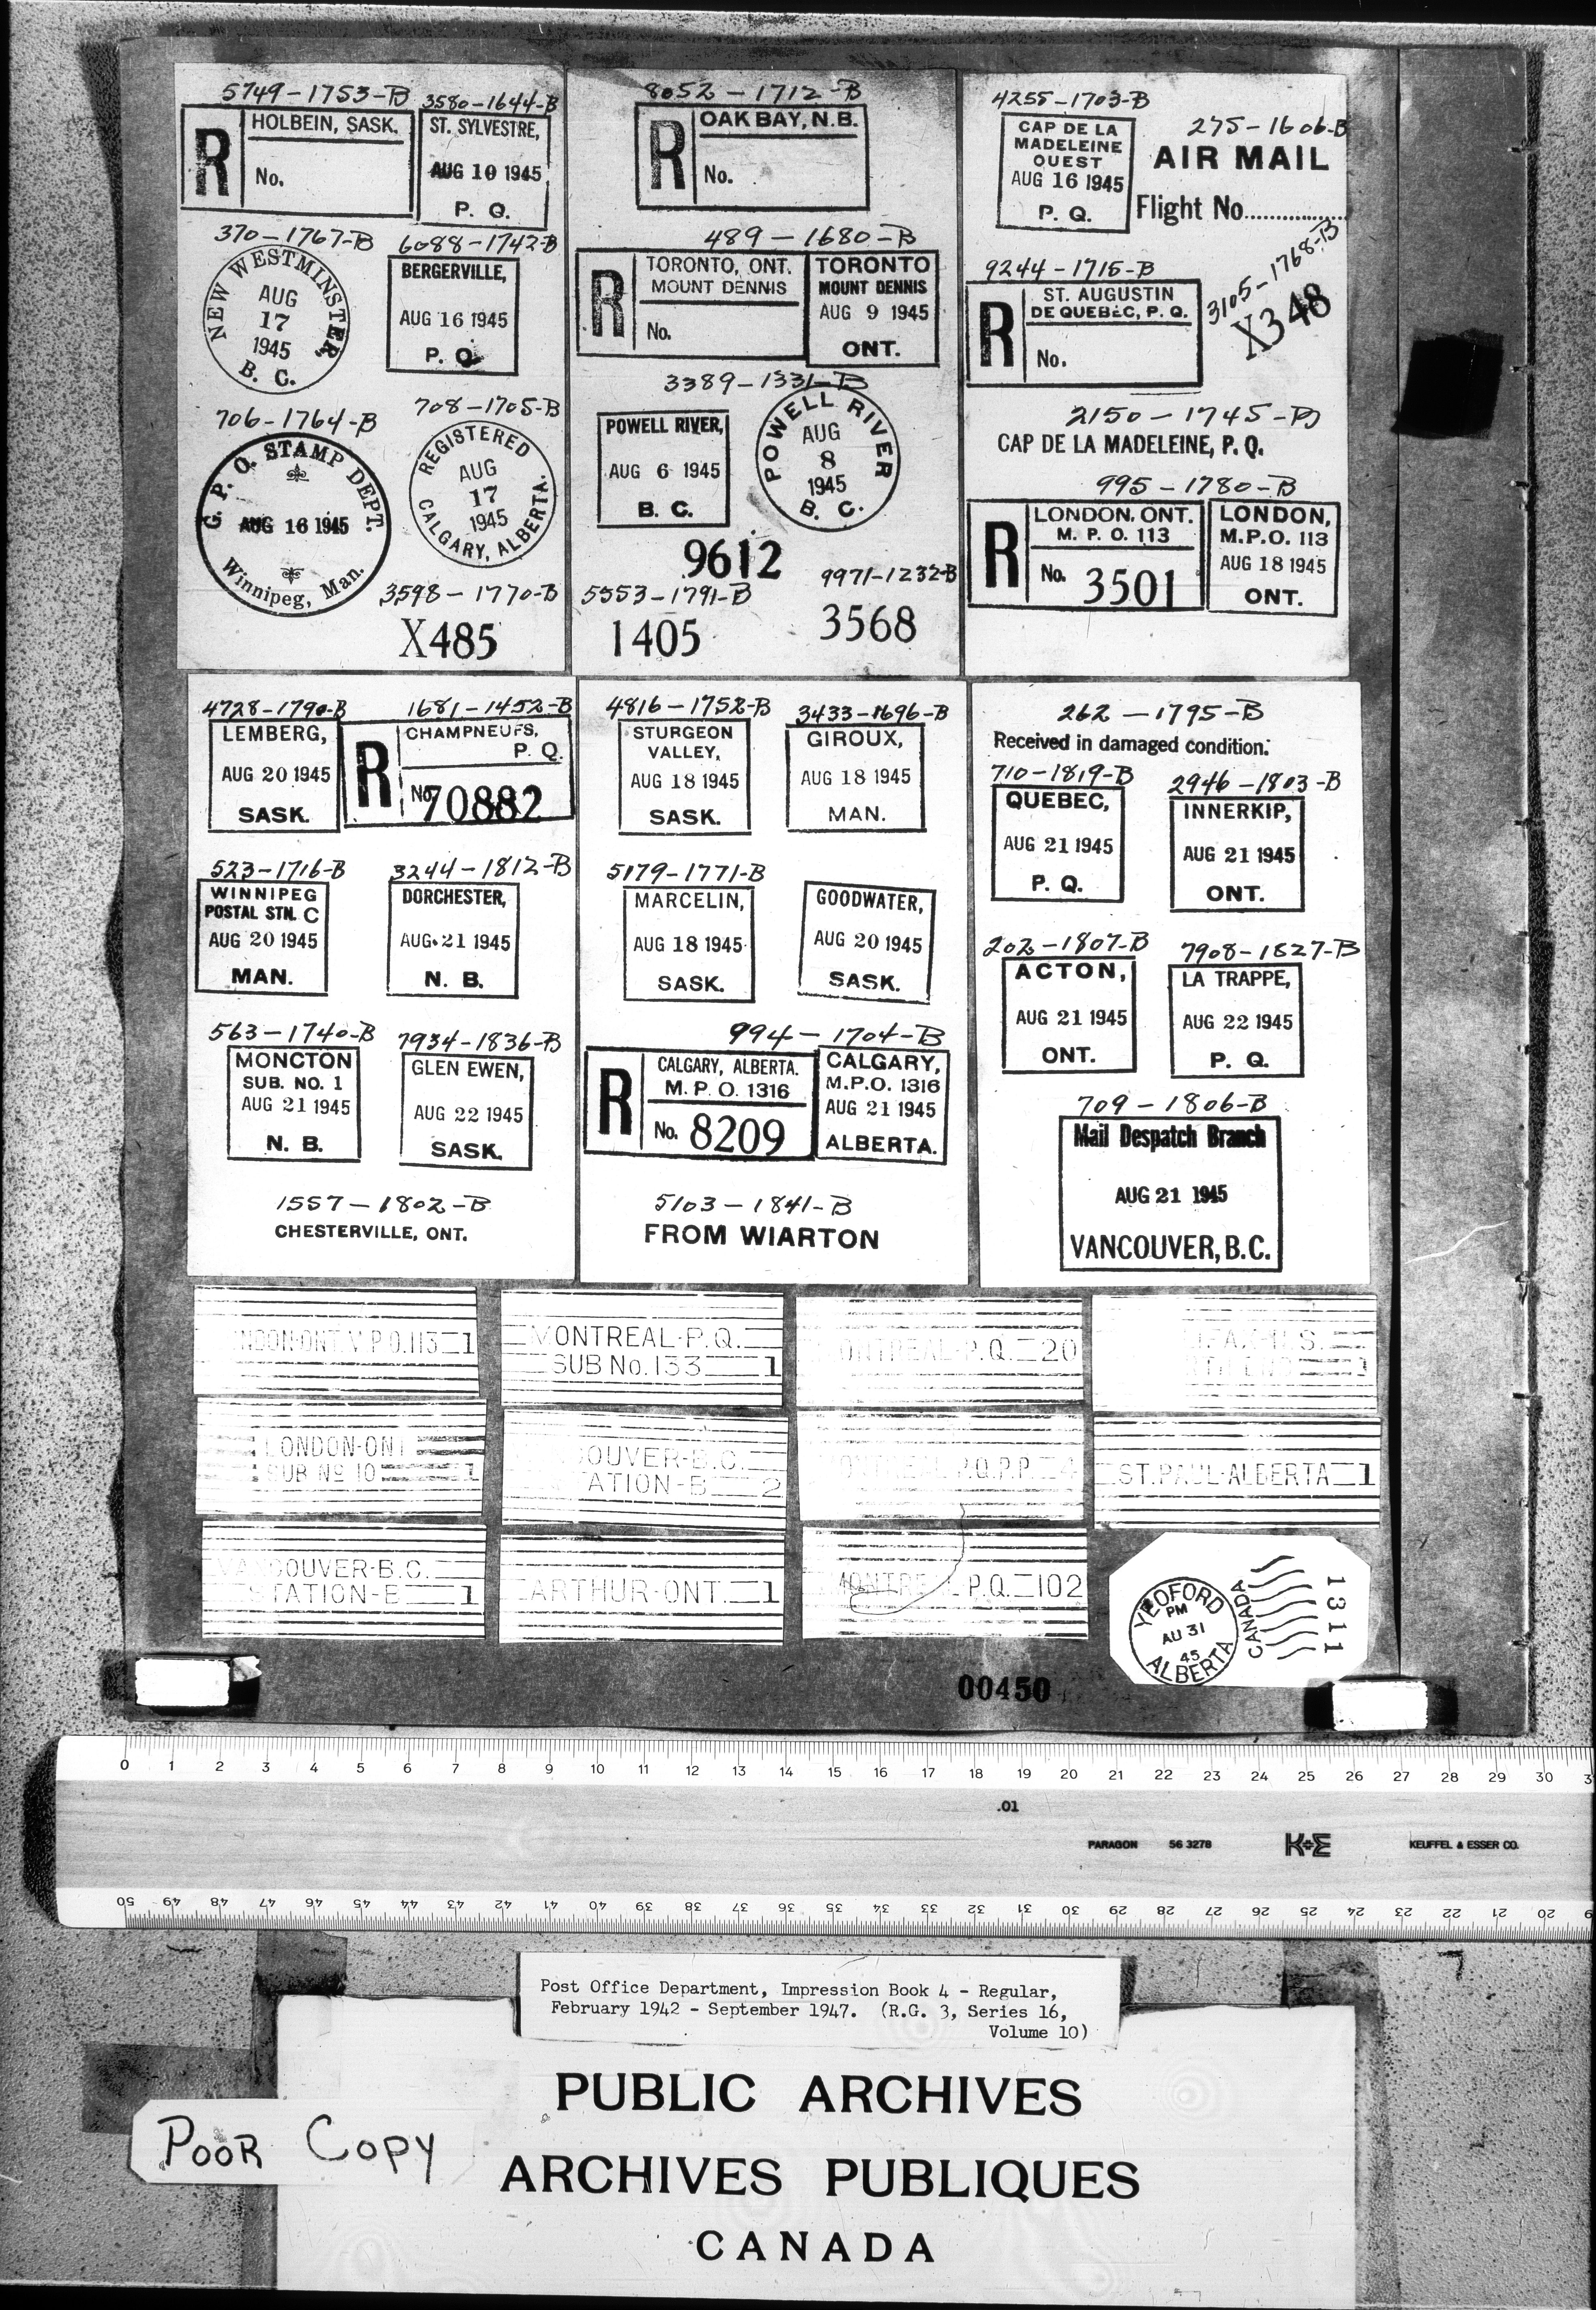 5749-1753-B
R
HOLBEIN, SASK.
No.
3580-1644-B
ST. SYLVESTRE,
AUG 10 1945
P. Q.
370-1767-B
NEW WESTMINSTER,
AUG
17
1945
B. C.
6088-1742-B
BERGERVILLE,
AUG 16 1945
P. Q.
706-1764-B
G. P. O. STAMP DEPT.
AUG 16 1945
Winnipeg, Man.
708-1705-B
REGISTERED
AUG
17
1945
CALGARY, ALBERTA.
3598-1770-B
X485
8052-1712-B
R
OAK BAY, N.B.
No.
489-1680-B
R
TORONTO, ONT.
MOUNT DENNIS
No.
TORONTO
MOUNT DENNIS
AUG 9 1945
ONT.
3389-1331-B
POWELL RIVER,
AUG 6 1945
B. C.
POWELL RIVER
AUG
8
1945
B. C.
9612
5553-1791-B
1405
9971-1232-B
3568
4255-1703-B
CAP DE LA
MADELEINE
OUEST
AUG 16 1945
P. Q.
275-1606-B
AIR MAIL
Flight No..............
9244-1715-B
R
ST. AUGUSTIN
DE QUEBEC, P. Q.
No.
3105-1768-B
X348
2150-1745-B
CAP DE LA MADELEINE, P. Q.
995-1780-B
R
LONDON, ONT.
M. P. O. 113
No. 3501
LONDON,
M.P.O. 113
AUG 18 1945
ONT.
4728-1790-B
LEMBERG,
AUG 20 1945
SASK.
1681-1452-B
R
CHAMPNEUFS,
P. Q.
No. 70882
523-1716-B
WINNIPEG
POSTAL STN. C
AUG 20 1945
MAN.
3244-1812-B
DORCHESTER,
AUG 21 1945
N. B.
563-1740-B
MONCTON
SUB. NO. 1
AUG 21 1945
N. B.
7934-1836-B
GLEN EWEN,
AUG 22 1945
SASK.
1557-1802-B
CHESTERVILLE, ONT.
4816-1752-B
STURGEON
VALLEY,
AUG 18 1945
SASK.
3433-1696-B
GIROUX,
AUG 18 1945
MAN.
5179-1771-B
MARCELIN,
AUG 18 1945
SASK.
GOODWATER,
AUG 20 1945
SASK.
994-1704-B
R
CALGARY, ALBERTA.
M. P. O. 1316
No. 8209
CALGARY,
M.P.O. 1316
AUG 21 1945
ALBERTA.
5103-1841-B
FROM WIARTON
262-1795-B
Received in damaged condition.
710-1819-B
QUEBEC,
AUG 21 1945
P. Q.
2946-1803-B
INNERKIP,
AUG 21 1945
ONT.
202-1807-B
ACTON,
AUG 21 1945
ONT.
7908-1827-B
LA TRAPPE,
AUG 22 1945
P. Q.
709-1806-B
Mail Despatch Branch
AUG 21 1945
VANCOUVER, B.C.
NDON-ONT. M.P.O.113 1
MONTREAL-P.Q.
SUB No. 133 1
ONTREAL-P.Q. 20
LONDON-ONT
SUB No 10 1
OUVER-B.C.
ATION-B 2
P.Q.P.P. 4
ST.PAUL-ALBERTA 1
VANCOUVER-B.C.
STATION-E 1
ARTHUR-ONT. 1
MONTRE L P.Q. 102
YEOFORD
PM
AU 31
45
ALBERTA
CANADA
1311
00450
0 1 2 3 4 5 6 7 8 9 10 11 12 13 14 15 16 17 18 19 20 21 22 23 24 25 26 27 28 29 30 3
.01
PARAGON 56 3278 K+E KEUFFEL & ESSER CO.
50 49 48 47 46 45 44 43 42 41 40 39 38 37 36 35 34 33 32 31 30 29 28 27 26 25 24 23 22 21 20 9
Post Office Department, Impression Book 4 - Regular,
February 1942 - September 1947. (R.G. 3, Series 16,
Volume 10)
PUBLIC ARCHIVES
POOR COPY
ARCHIVES PUBLIQUES
CANADA